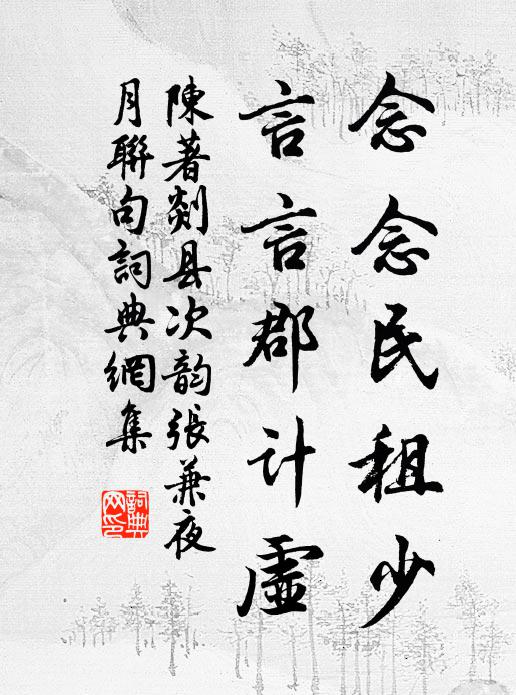 念念民租少
言言郡计虚
陳著剡县次韵張兼夜
月聯句詞典網集
詞典网印